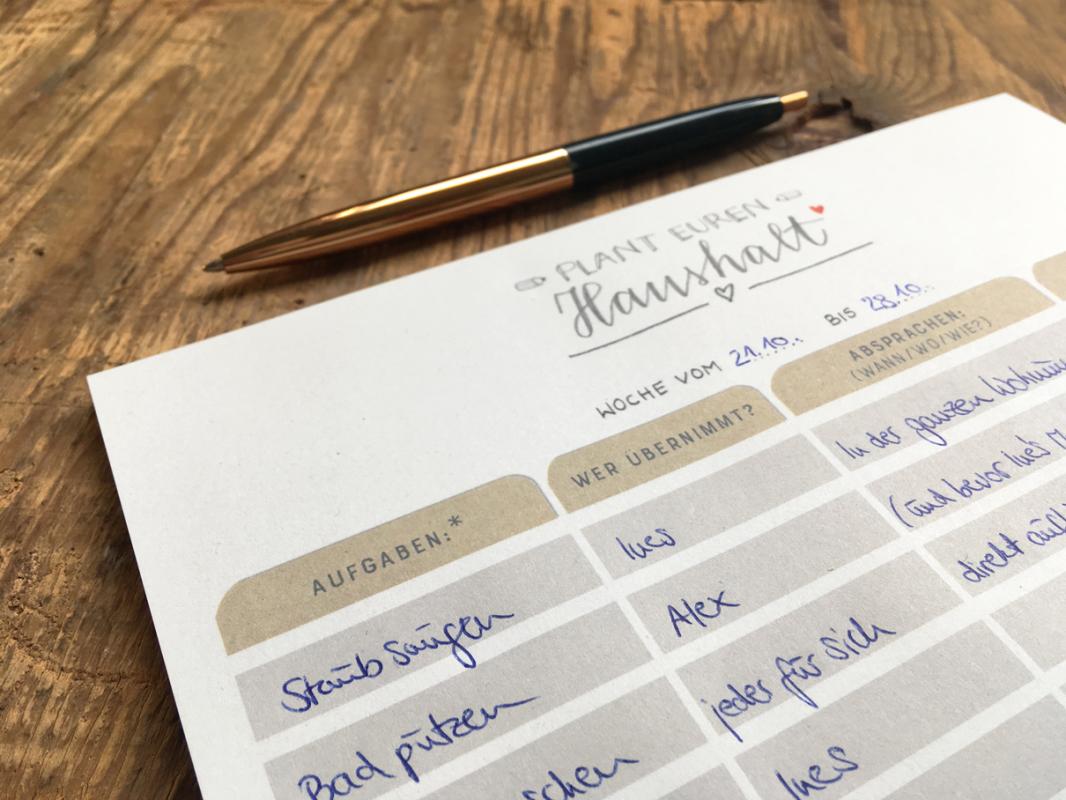 PLANT EUREN
Haushalt
WOCHE VOM 21.10. BIS 28.10.
AUFGABEN:* WER ÜBERNIMMT? ABSPRACHEN:
(WANN/WO/WIE?)
Staub saugen Ines In der ganzen
Bad putzen Alex (und bevor Ines
jeder für sich direkt
Ines